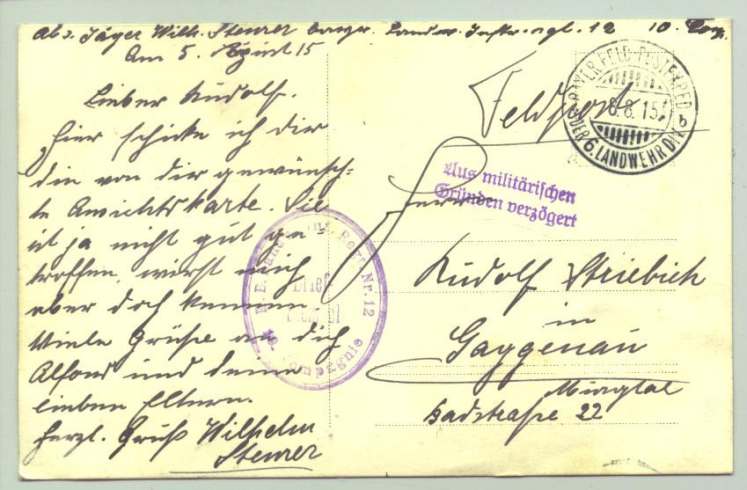 Abs. Jäger Wilh. Steurer bayr. Landw. Inftr. rgt. 12 10. Comp.
Am 5. August 15
Lieber Rudolf.
Hier schicke ich dir
die von dir gewünsch-
te Ansichtskarte. Sie
ist ja nicht gut ge-
troffen, wirst mich
aber doch kennen.
Viele Grüße an dich
Alfons und deine
lieben Eltern.
Herzl. Gruß Wilhelm
Steurer
Feldpost
BAYER. FELD-POSTEXPED.
8.8.15
b
DER 6. LANDWEHR DIV.
Aus militärischen
Gründen verzögert
Herrn
Rudolf Striebich
in
Gaggenau
Murgtal
Badstraße 22
Nr. 12
Brief
Kompagnie